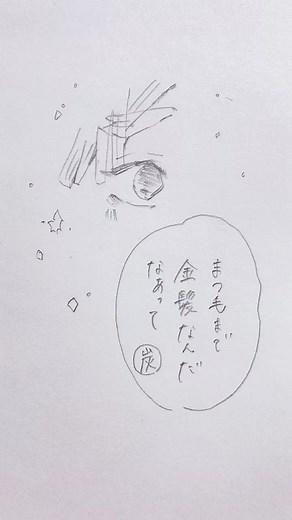 まつ毛まで
金髪なんだ
なあって
炭